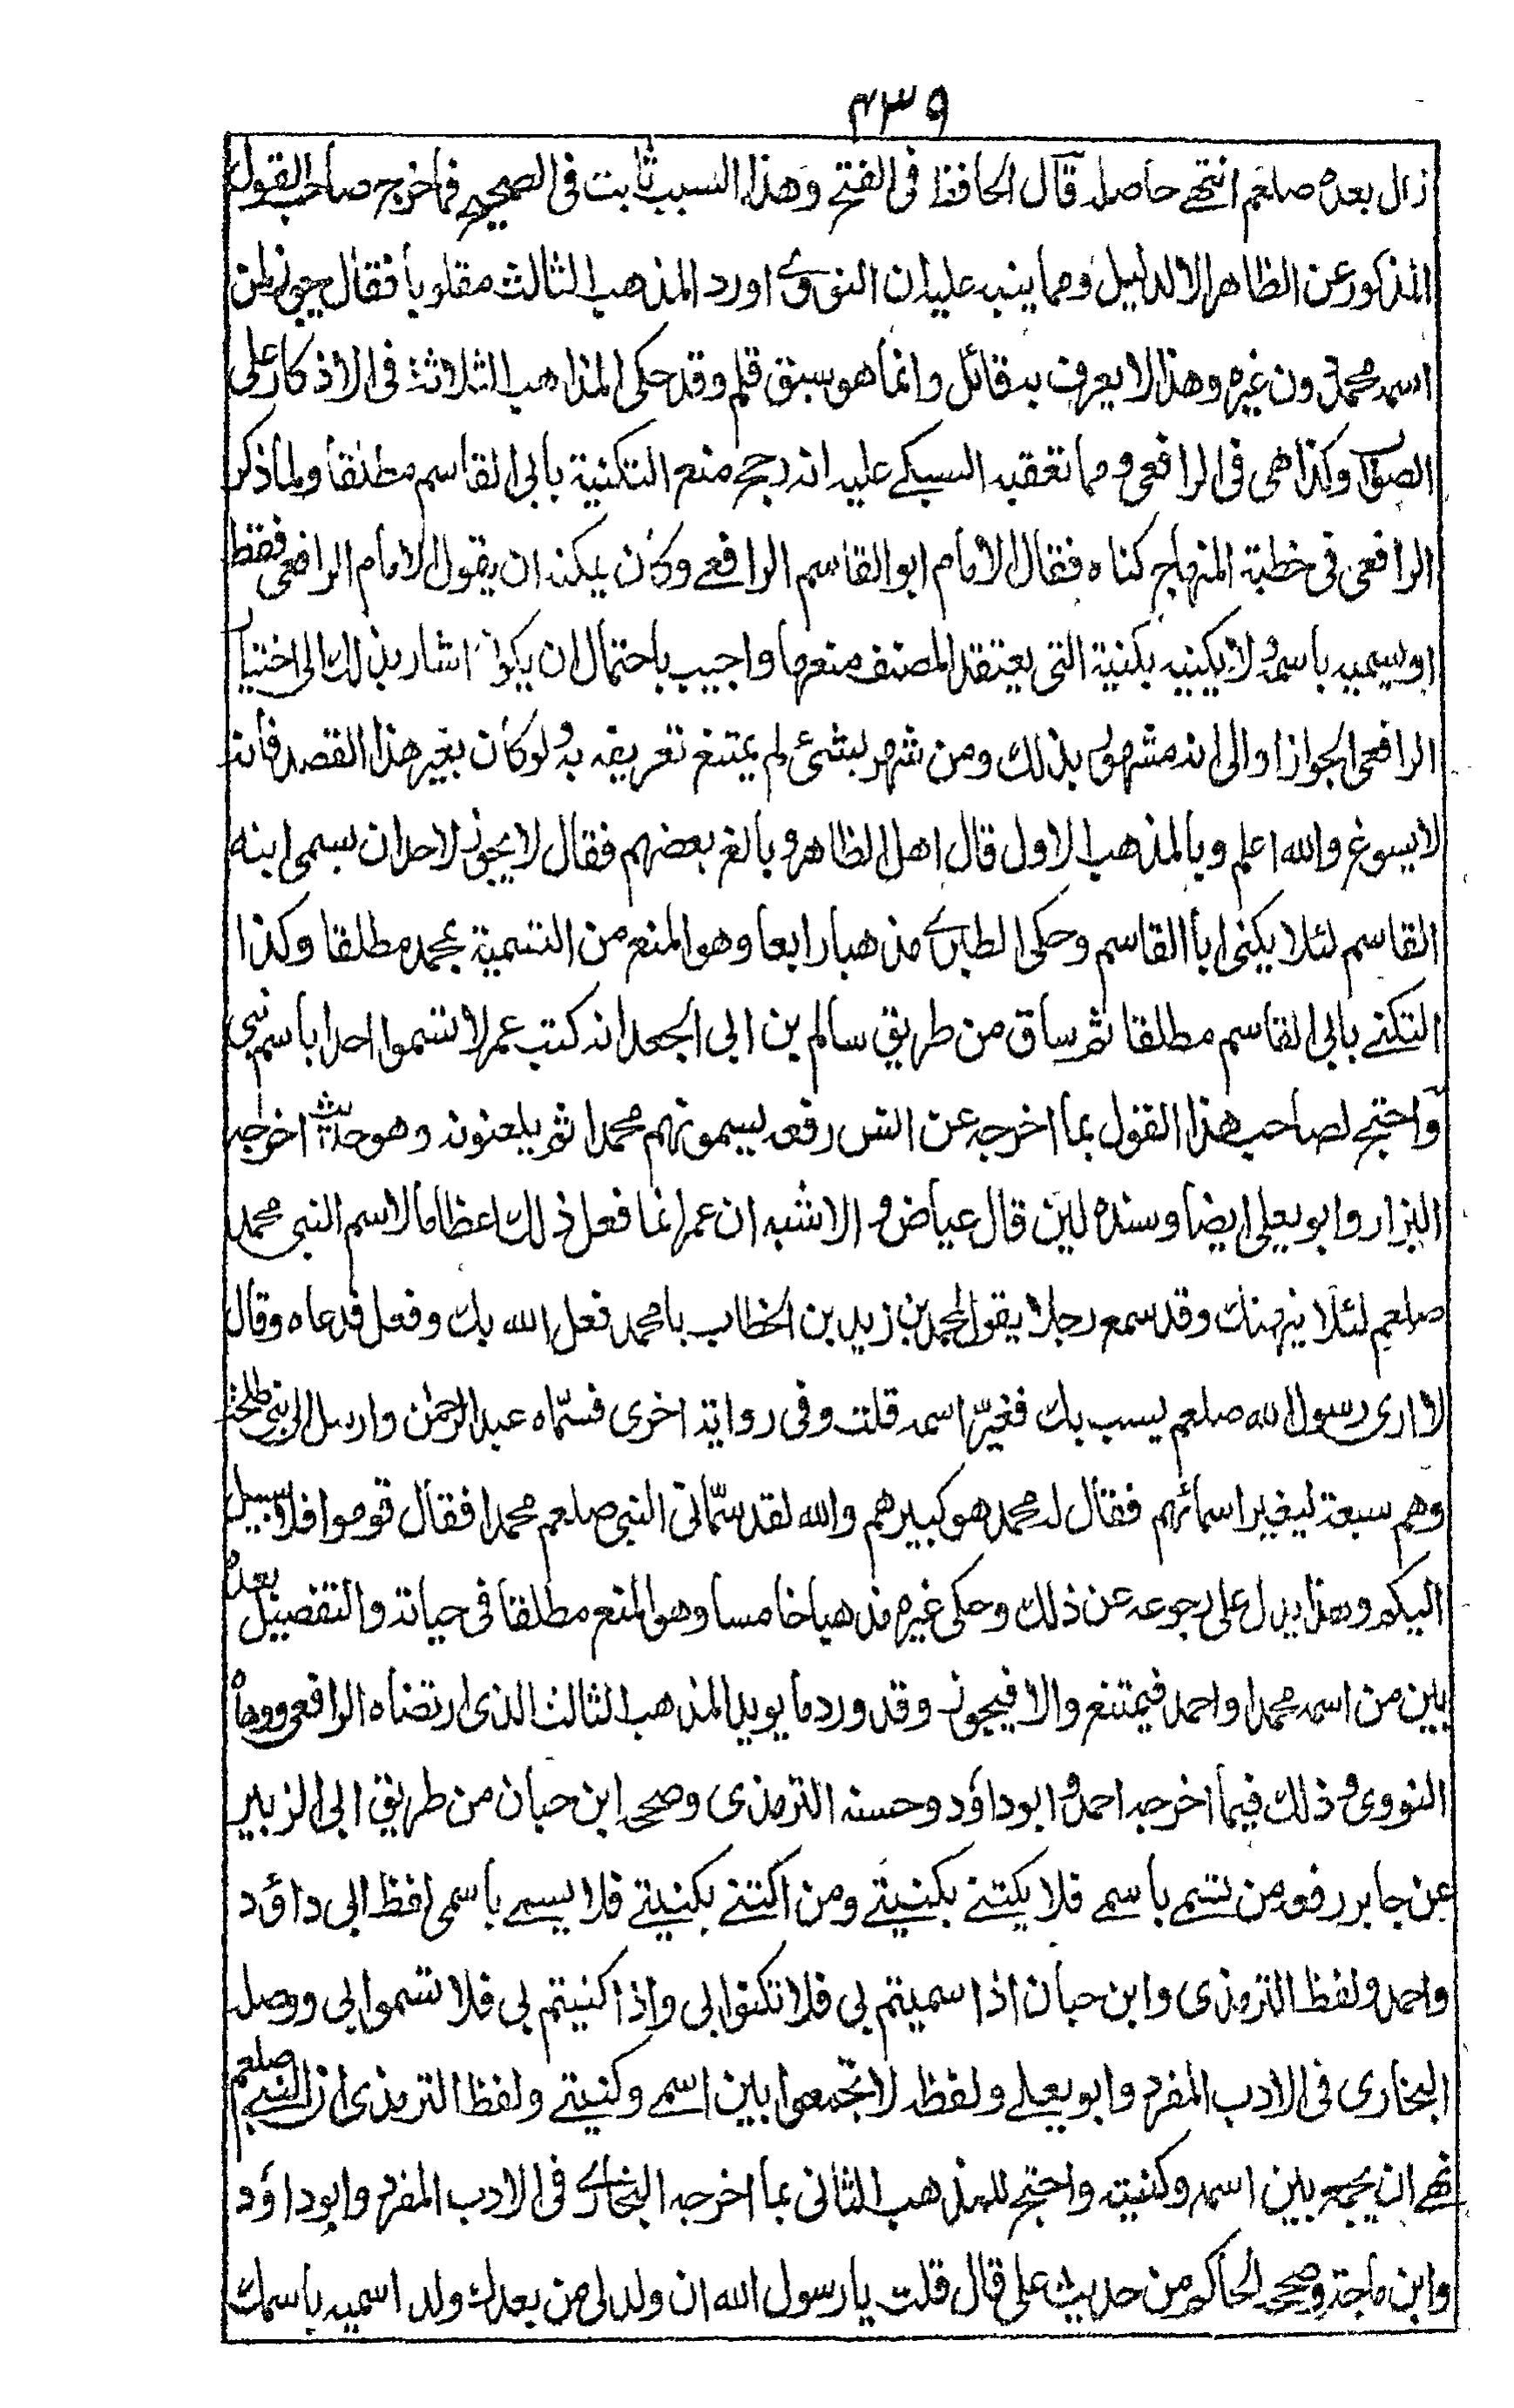 ۴۳۹
زال بعده صلعم انتهى حاصله قال الحافظ فى الفتح وهذا السبب ثابت فى الصحيح فما خرج صاحب القول
المذكور عن الظاهر الا لدليل ومما ينبه عليه ان النووى اورد المذهب الثالث مقلوبا فقال يجوز لمن
اسمه محمد دون غيره وهذا لا يعرف به قائل وانما هو سبق قلم وقد حكى المذاهب الثلاثة فى الاذكار على
الصواب وكذا هى فى الرافعى ومما تعقبه السبكے عليه انه رجح منع التكنية بابى القاسم مطلقا ولما ذكر
الرافعى فى خطبة المنهاج كناه فقال الامام ابو القاسم الرافعے وكان يمكنه ان يقول الامام الرافعى فقط
او يسميه باسمه ولا يكنيه بكنية التى يعتقد المصنف منعها واجيب باحتمال ان يكون اشار بذلك الى اختيار
الرافعى الجواز او الى انه مشهور بذلك ومن شهر لبشئ لم يمتنع تعريفه به ولو كان بغير هذا القصد فانه
لا يسوغ والله اعلم وبالمذهب الاول قال اهل الظاهر وبالغ بعضهم فقال لا يجوز لاحد ان يسمى ابنه
القاسم لئلا يكنى ابا القاسم وحكى الطبرى مذهبا رابعا وهو المنع من التسمية بمحمد مطلقا وكذا
التكنے بابى القاسم مطلقا ثم ساق من طريق سالم بن ابى الجعد انه كتب عمر لا تسموا احدا باسم نبى
واحتج لصاحب هذا القول بما اخرجه عن انس رفعه يسمونهم محمدا ثم يلعنونه وهو حديث اخرجه
البزار وابو يعلى ايضا وسنده لين قال عياض والاشبه ان عمر انما فعل ذلك اعظاما لاسم النبى محمد
صلعم لئلا ينهتك وقد سمع رجلا يقول لمحمد بن زيد بن الخطاب يا محمد فعل الله بك وفعل فدعاه وقال
لا ارى رسول الله صلعم يسب بك فغير اسمه قلت وفى رواية اخرى فسمّاه عبد الرحمن وارسل الى بنى طلحة
وهم سبعة ليغير اسمائهم فقال له محمد هو كبيرهم والله لقد سمّانى النبى صلعم محمدا فقال قوموا فلا سبيل
اليكم وهذا يدل على رجوعه عن ذلك وحكى غيره مذهبا خامسا وهو المنع مطلقا فى حياته والتفصيل بعده
بين من اسمه محمد او احمد فيمتنع والا فيجوز وقد ورد ما يويد المذهب الثالث الذى ارتضاه الرافعى ووهاه
النووى وذلك فيما اخرجه احمد وابو داؤد وحسنه الترمذى وصححه ابن حبان من طريق ابى الزبير
عن جابر رفعه من تسم باسمے فلا يكتنے بكنيتے ومن اكتنے بكنيتے فلا يسمے باسمى لفظ ابى داؤد
واحمد ولفظ الترمذى وابن حبان اذا سميتم بى فلا تكنوا بى واذا كنيتم بى فلا تسموا بى ووصله
البخارى فى الادب المفرد وابو يعلے ولفظه لا تجمعوا بين اسمے وكنيتے ولفظ الترمذى ان النبے صلعم
نهے ان يجمع بين اسمه وكنيته واحتج للمذهب الثانى بما اخرجه البخارى فى الادب المفرد وابو داؤد
وابن ماجة وصححه الحاكم من حديث على قال قلت يا رسول الله ان ولد لى من بعدك ولد اسميه باسمك